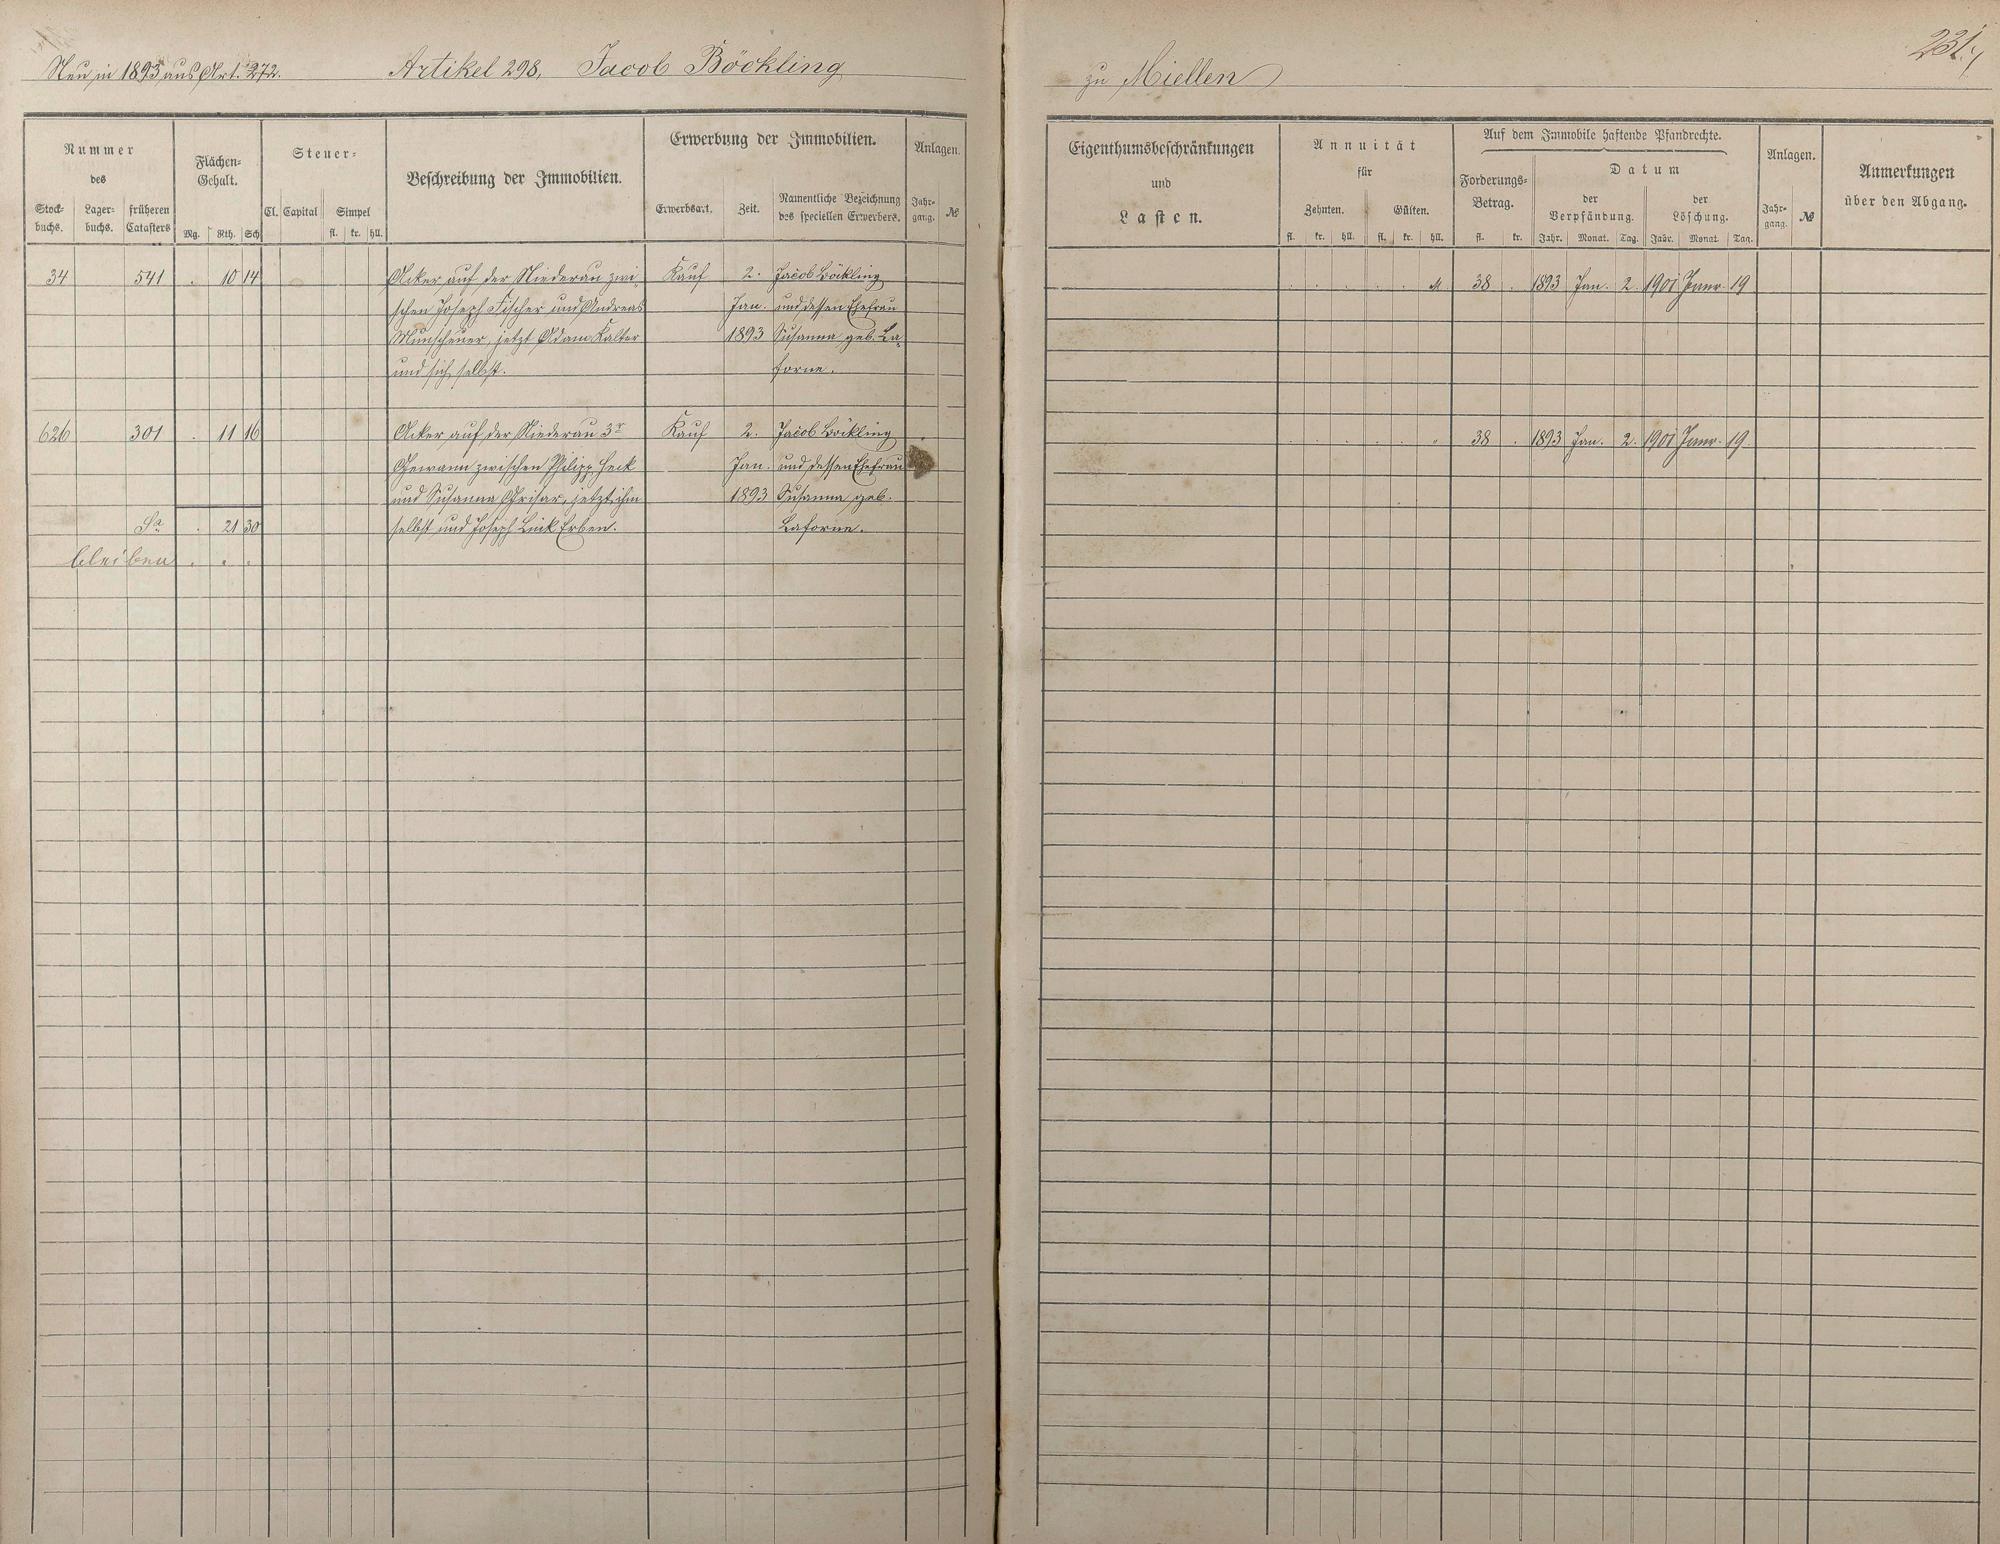 Neu in 1893 aus Art. 272.
Artikel 298. Jacob Böckling
zu Miellen
231.
Nummer
des
Stock-
buchs.
Lager-
buchs.
früheren
Catasters
Flächen-
Gehalt.
Mg. Rth. Sch.
Steuer-
Cl. Capital Simpel
fl. kr. hll.
Beschreibung der Immobilien.
Erwerbung der Immobilien.
Erwerbsart. Zeit.
Namentliche Bezeichnung
des speciellen Erwerbers.
Anlagen.
Jahr-
gang. №
Eigenthumsbeschränkungen
und
Lasten.
Annuität
für
Zehnten. Gülten.
fl. kr. hll. fl. kr. hll.
Auf dem Immobile haftende Pfandrechte.
Forderungs-
Betrag.
fl. kr.
Datum
der
Verpfändung.
Jahr. Monat. Tag.
der
Löschung.
Jahr. Monat. Tag.
Anlagen.
Jahr-
gang. №
Anmerkungen
über den Abgang.
34 541 . 10 14 Acker auf der Niederau zwi- Kauf 2. Jacob Böckling . . . . . M. 38 . 1893 Jan. 2. 1901 Janr. 19
schen Joseph Fischer und Andreas Jan. und dessen Ehefrau
Munscheuer, jetzt Adam Kalter 1893 Susanna geb. La-
und sich selbst. forne.
626 301 . 11 16 Acker auf der Niederau 3r Kauf 2. Jacob Böckling . . . . . " 38 . 1893 Jan. 2. 1901 Janr. 19.
Gewann zwischen Philipp Heck Jan. und dessen Ehefrau
und Susanna Grisar, jetzt ihm 1893 Susanna geb.
Sa . 21 30 selbst und Joseph Linck Erben. Laforne.
bleiben . . .